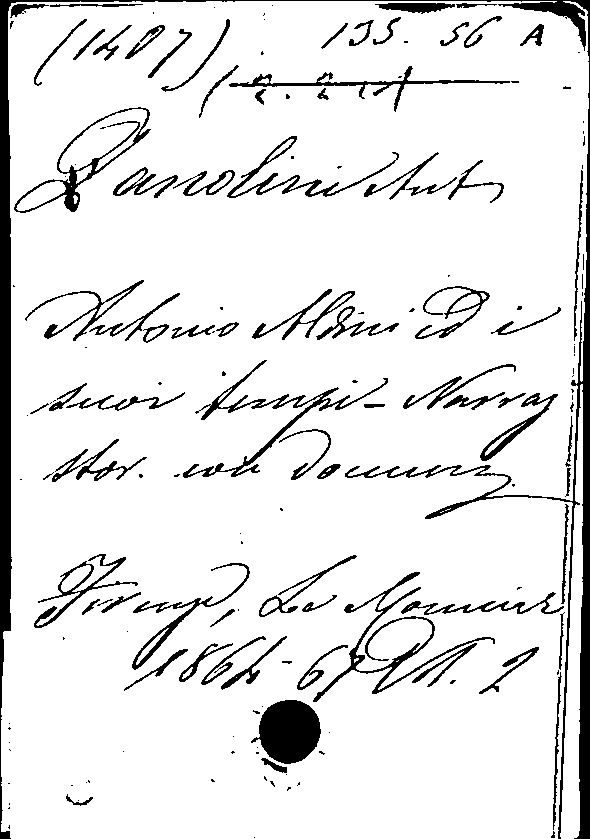 (1407) 135. 56 A
Zanolini Ant
Antonio Aldini ed i
suoi tempi - Narraz
stor. con documenz
Firenze, Le Monnier
1864-67 Vol. 2